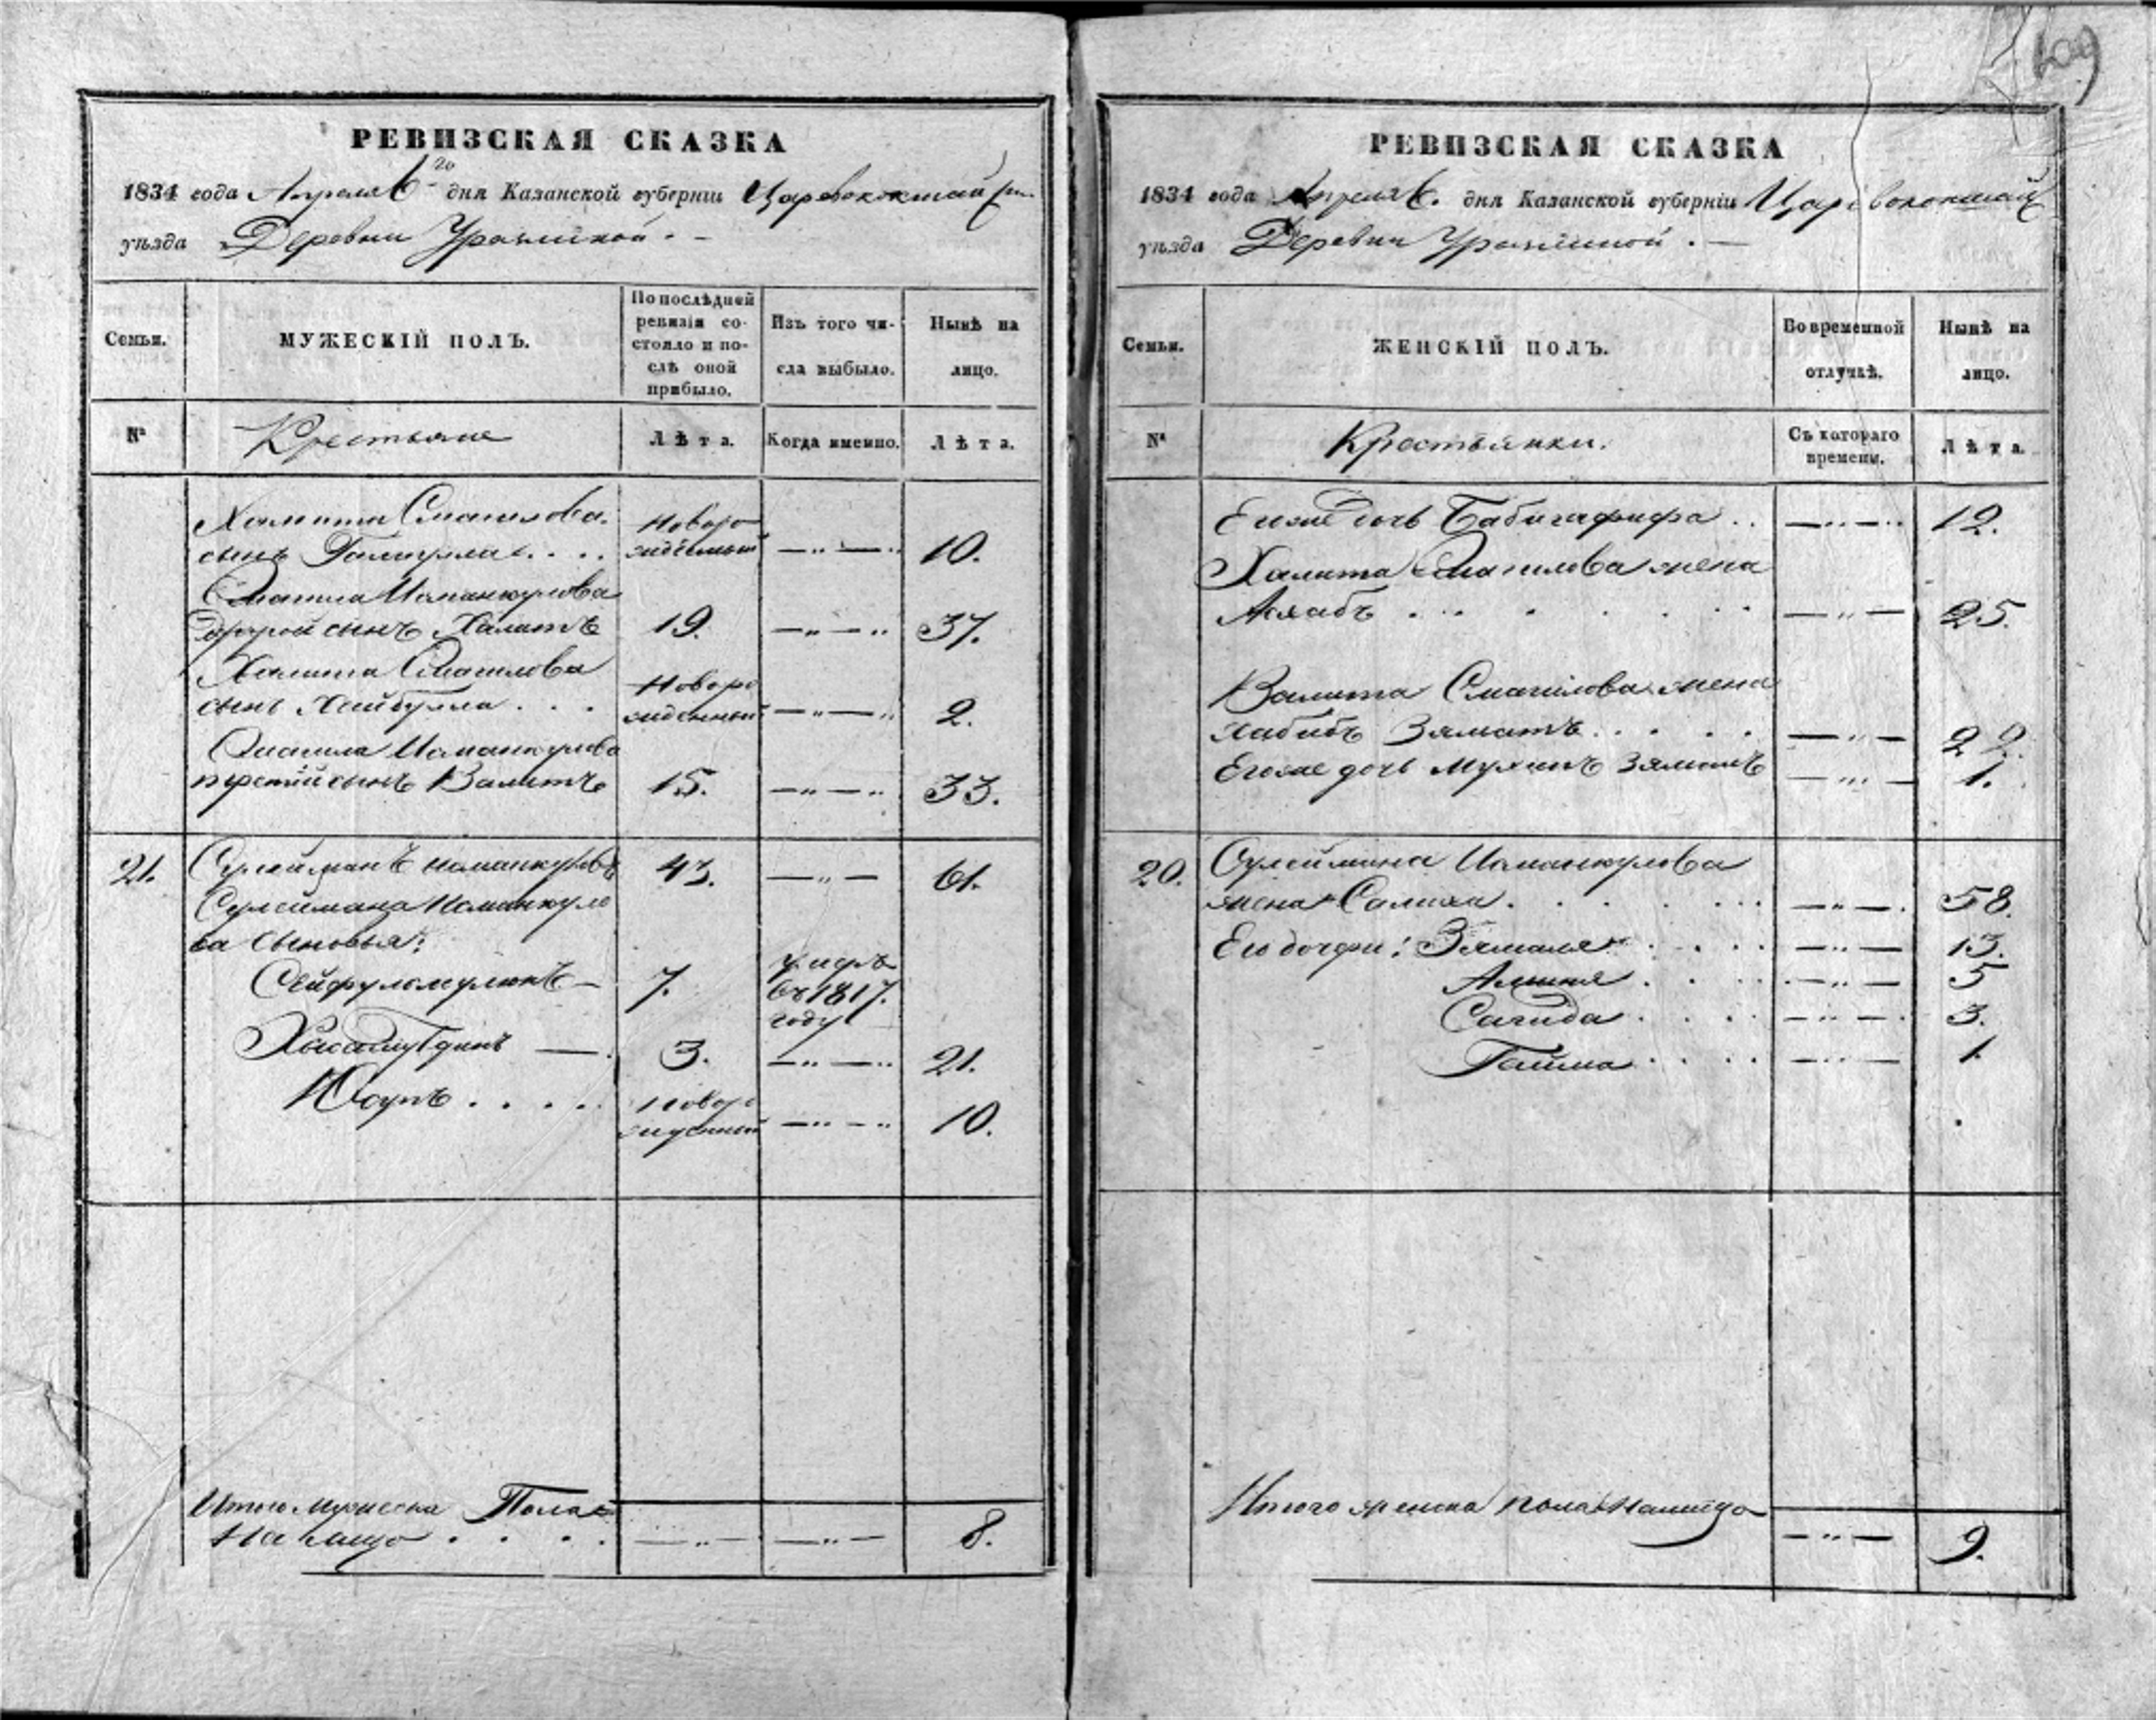 109
РЕВИЗСКАЯ СКАЗКА
1834 года Апреля 6го дня Казанской губерніи Царевококшай
уѣзда Деревни
Семьи.
МУЖЕСКІЙ ПОЛЪ.
По послѣдней ревизіи со-
стояло и по-
слѣ оной
прибыло.
Изъ того чи-
сла выбыло.
Нынѣ на
лицо.
№
Крестьяне
Лѣта.
Когда именно.
Лѣта.
Халита Смаилова
сынъ новоро
жденный —„—„ 10.
Смаила Иманкулова
другой сынъ Халитъ 19. —„—„ 37.
Халита Смаилова Новоро
сынъ Хейбулла . . . жденный —„—„ 2.
Смаила Иманкулова
третій сынъ Валитъ 15. —„—„ 33.
21. Сулейманъ Иманкуловъ 43. —„— 61.
Сулеймана Иманкуло
ва сыновья:
Сейфуломулюкъ — 7. умеръ
въ 1817.
году
— 3. —„—„ 21.
Юсупъ . . . . Новоро
жденный —„—„ 10.
Итого мужеска Пола
На лицо . . . . —„— —„— 8.
РЕВИЗСКАЯ СКАЗКА
1834 года Апреля 6. дня Казанской губерніи Царевококшай
уѣзда Деревни
Семьи.
ЖЕНСКІЙ ПОЛЪ.
Во временной
отлучкѣ.
Нынѣ на
лицо.
№
Крестьянки.
Съ котораго
времени.
Лѣта.
Егоже дочь Бабигафифа . . —„—„ 12.
Халита Смаилова жена
—„— 25.
Валита Смаилова жена
Хабибъ Зяматъ . . . . . —„— 22.
Егоже дочь —„— 1.
20. Сулеймана Иманкулова
жена . . . . . —„—. 58.
Его дочери: Зямаля . . . . —„— 13.
. . . . —„— 5
Сагида . . . . —„— 3.
. . . . —„— 1.
Итого женска пола Налицо
—„— 9.